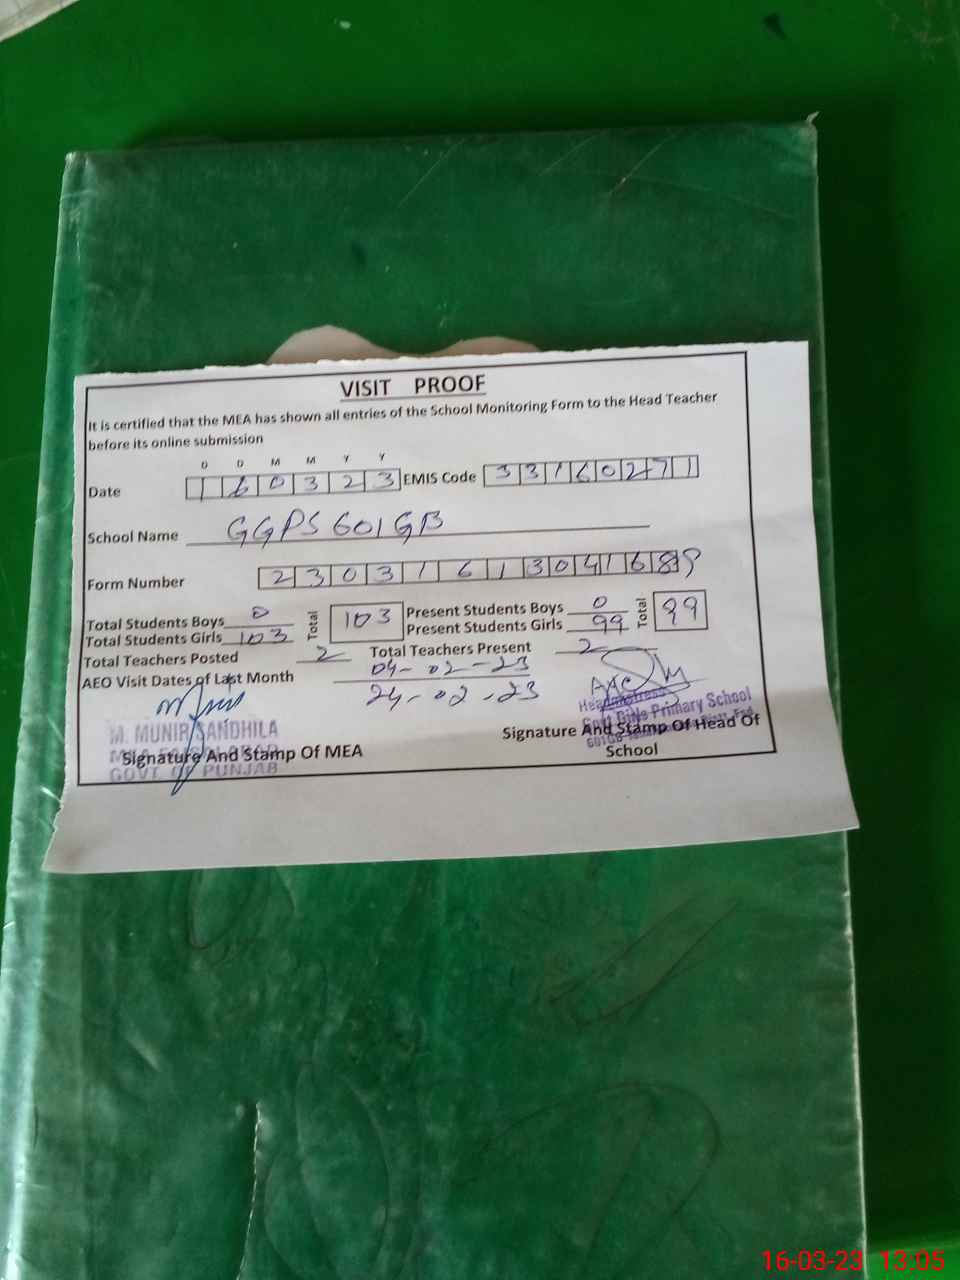 VISIT PROOF
It is certified that the MEA has shown all entries of the School Monitoring Form to the Head Teacher
before its online submission
D D M M Y Y
Date 1 6 0 3 2 3 EMIS Code 3 3 1 6 0 2 7 1
School Name GGPS 601 GB
Form Number 2 3 0 3 1 6 1 3 0 4 1 6 8 9
Total Students Boys 0 Total 103 Present Students Boys 0 Total 99
Total Students Girls 103 Present Students Girls 99
Total Teachers Posted 2 Total Teachers Present 2
AEO Visit Dates of Last Month 04-02-23
24-02-23
M. MUNIR SANDHILA
MEA FAISALABAD
GOVT. OF PUNJAB
Signature And Stamp Of MEA
Headmistress
Govt Girls Primary School
601GB
Signature And Stamp Of Head Of
School
16-03-23 13:05